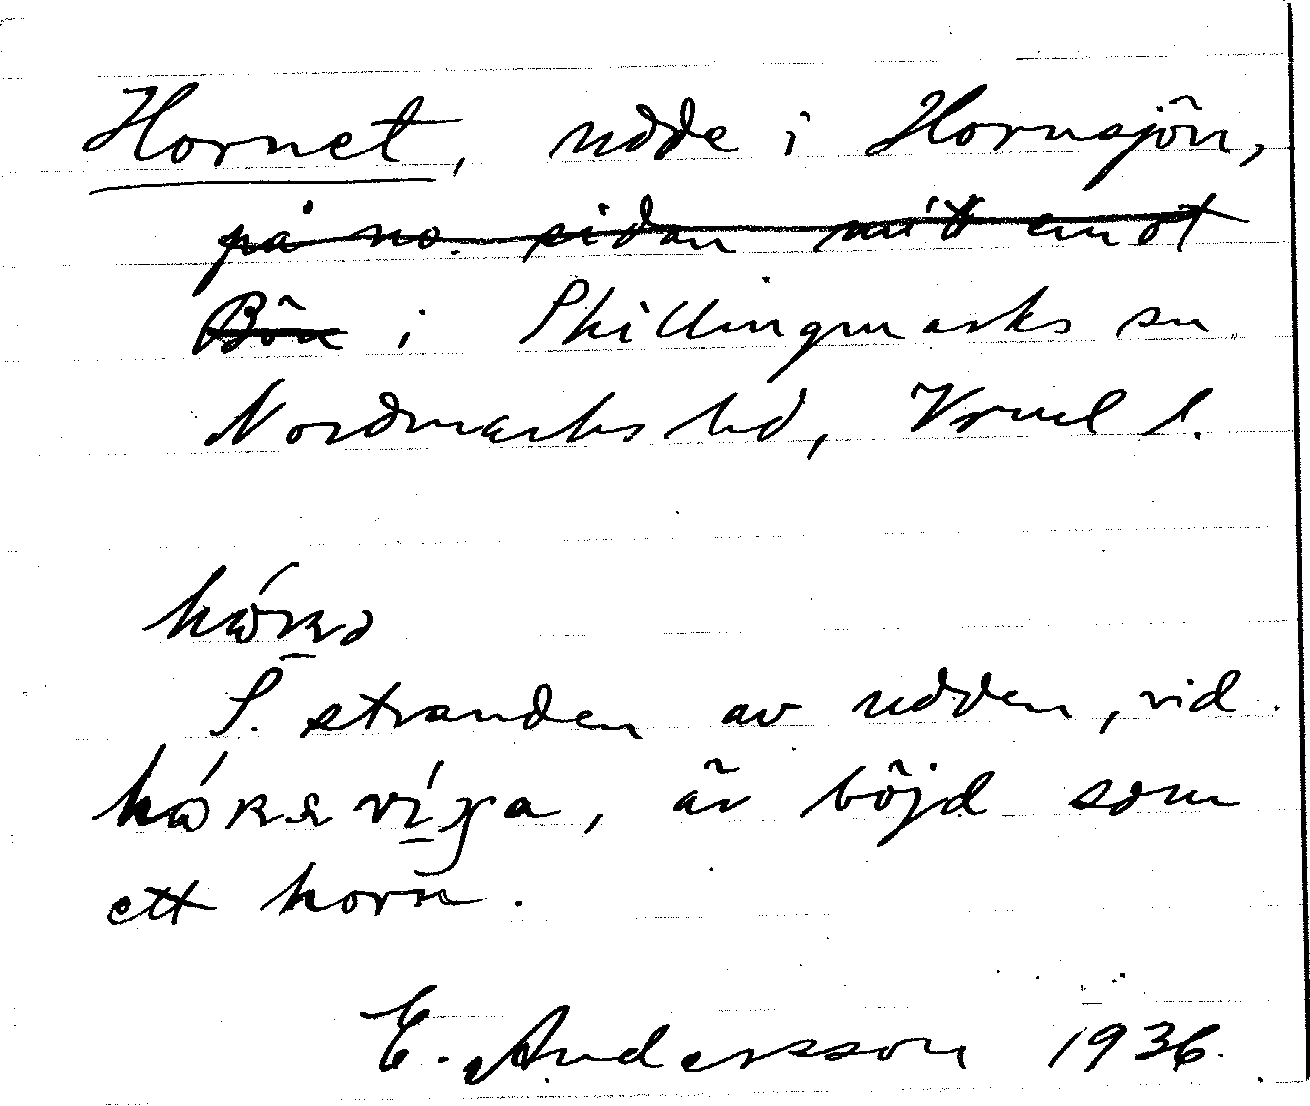 Hornet, udde i Hornsjön,
på no. sidan mitt emot
Bön i Skillingmarks sn
Nordmarks hd, Vrml l.
S. stranden av udden, vid
är böjd som
ett horn.
E. Andersson 1936.